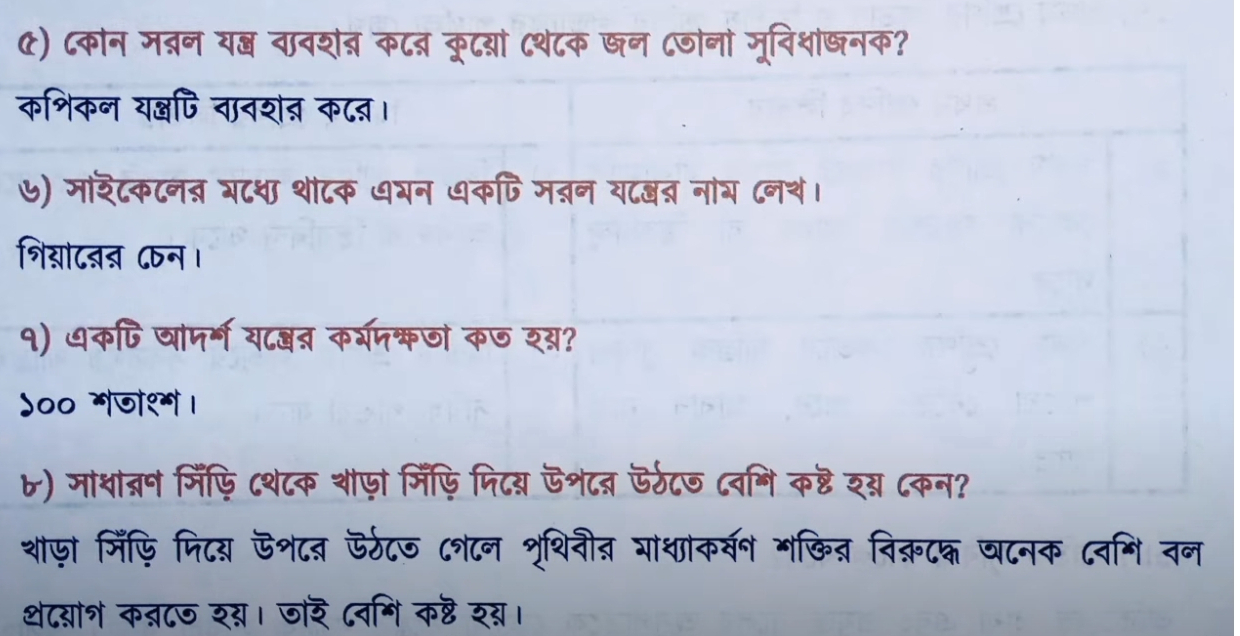 ৫) কোন সরল যন্ত্র ব্যবহার করে কুয়ো থেকে জল তোলা সুবিধাজনক?
কপিকল যন্ত্রটি ব্যবহার করে।
৬) সাইকেলের মধ্যে থাকে এমন একটি সরল যন্ত্রের নাম লেখ।
গিয়ারের চেন।
৭) একটি আদর্শ যন্ত্রের কর্মদক্ষতা কত হয়?
১০০ শতাংশ।
৮) সাধারণ সিঁড়ি থেকে খাড়া সিঁড়ি দিয়ে উপরে উঠতে বেশি কষ্ট হয় কেন?
খাড়া সিঁড়ি দিয়ে উপরে উঠতে গেলে পৃথিবীর মাধ্যাকর্ষণ শক্তির বিরুদ্ধে অনেক বেশি বল
প্রয়োগ করতে হয়। তাই বেশি কষ্ট হয়।